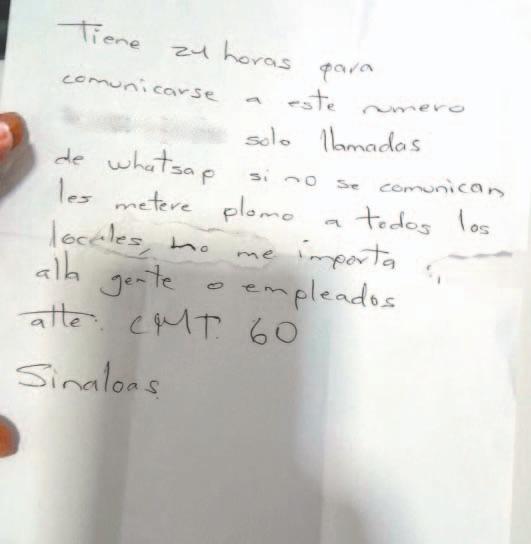 Tiene 24 horas para
comunicarse a este numero
solo llamadas
de whatsap si no se comunican
les metere plomo a todos los
locales, no me importa si
alla gente o empleados
atte: CMT 60
Sinaloas